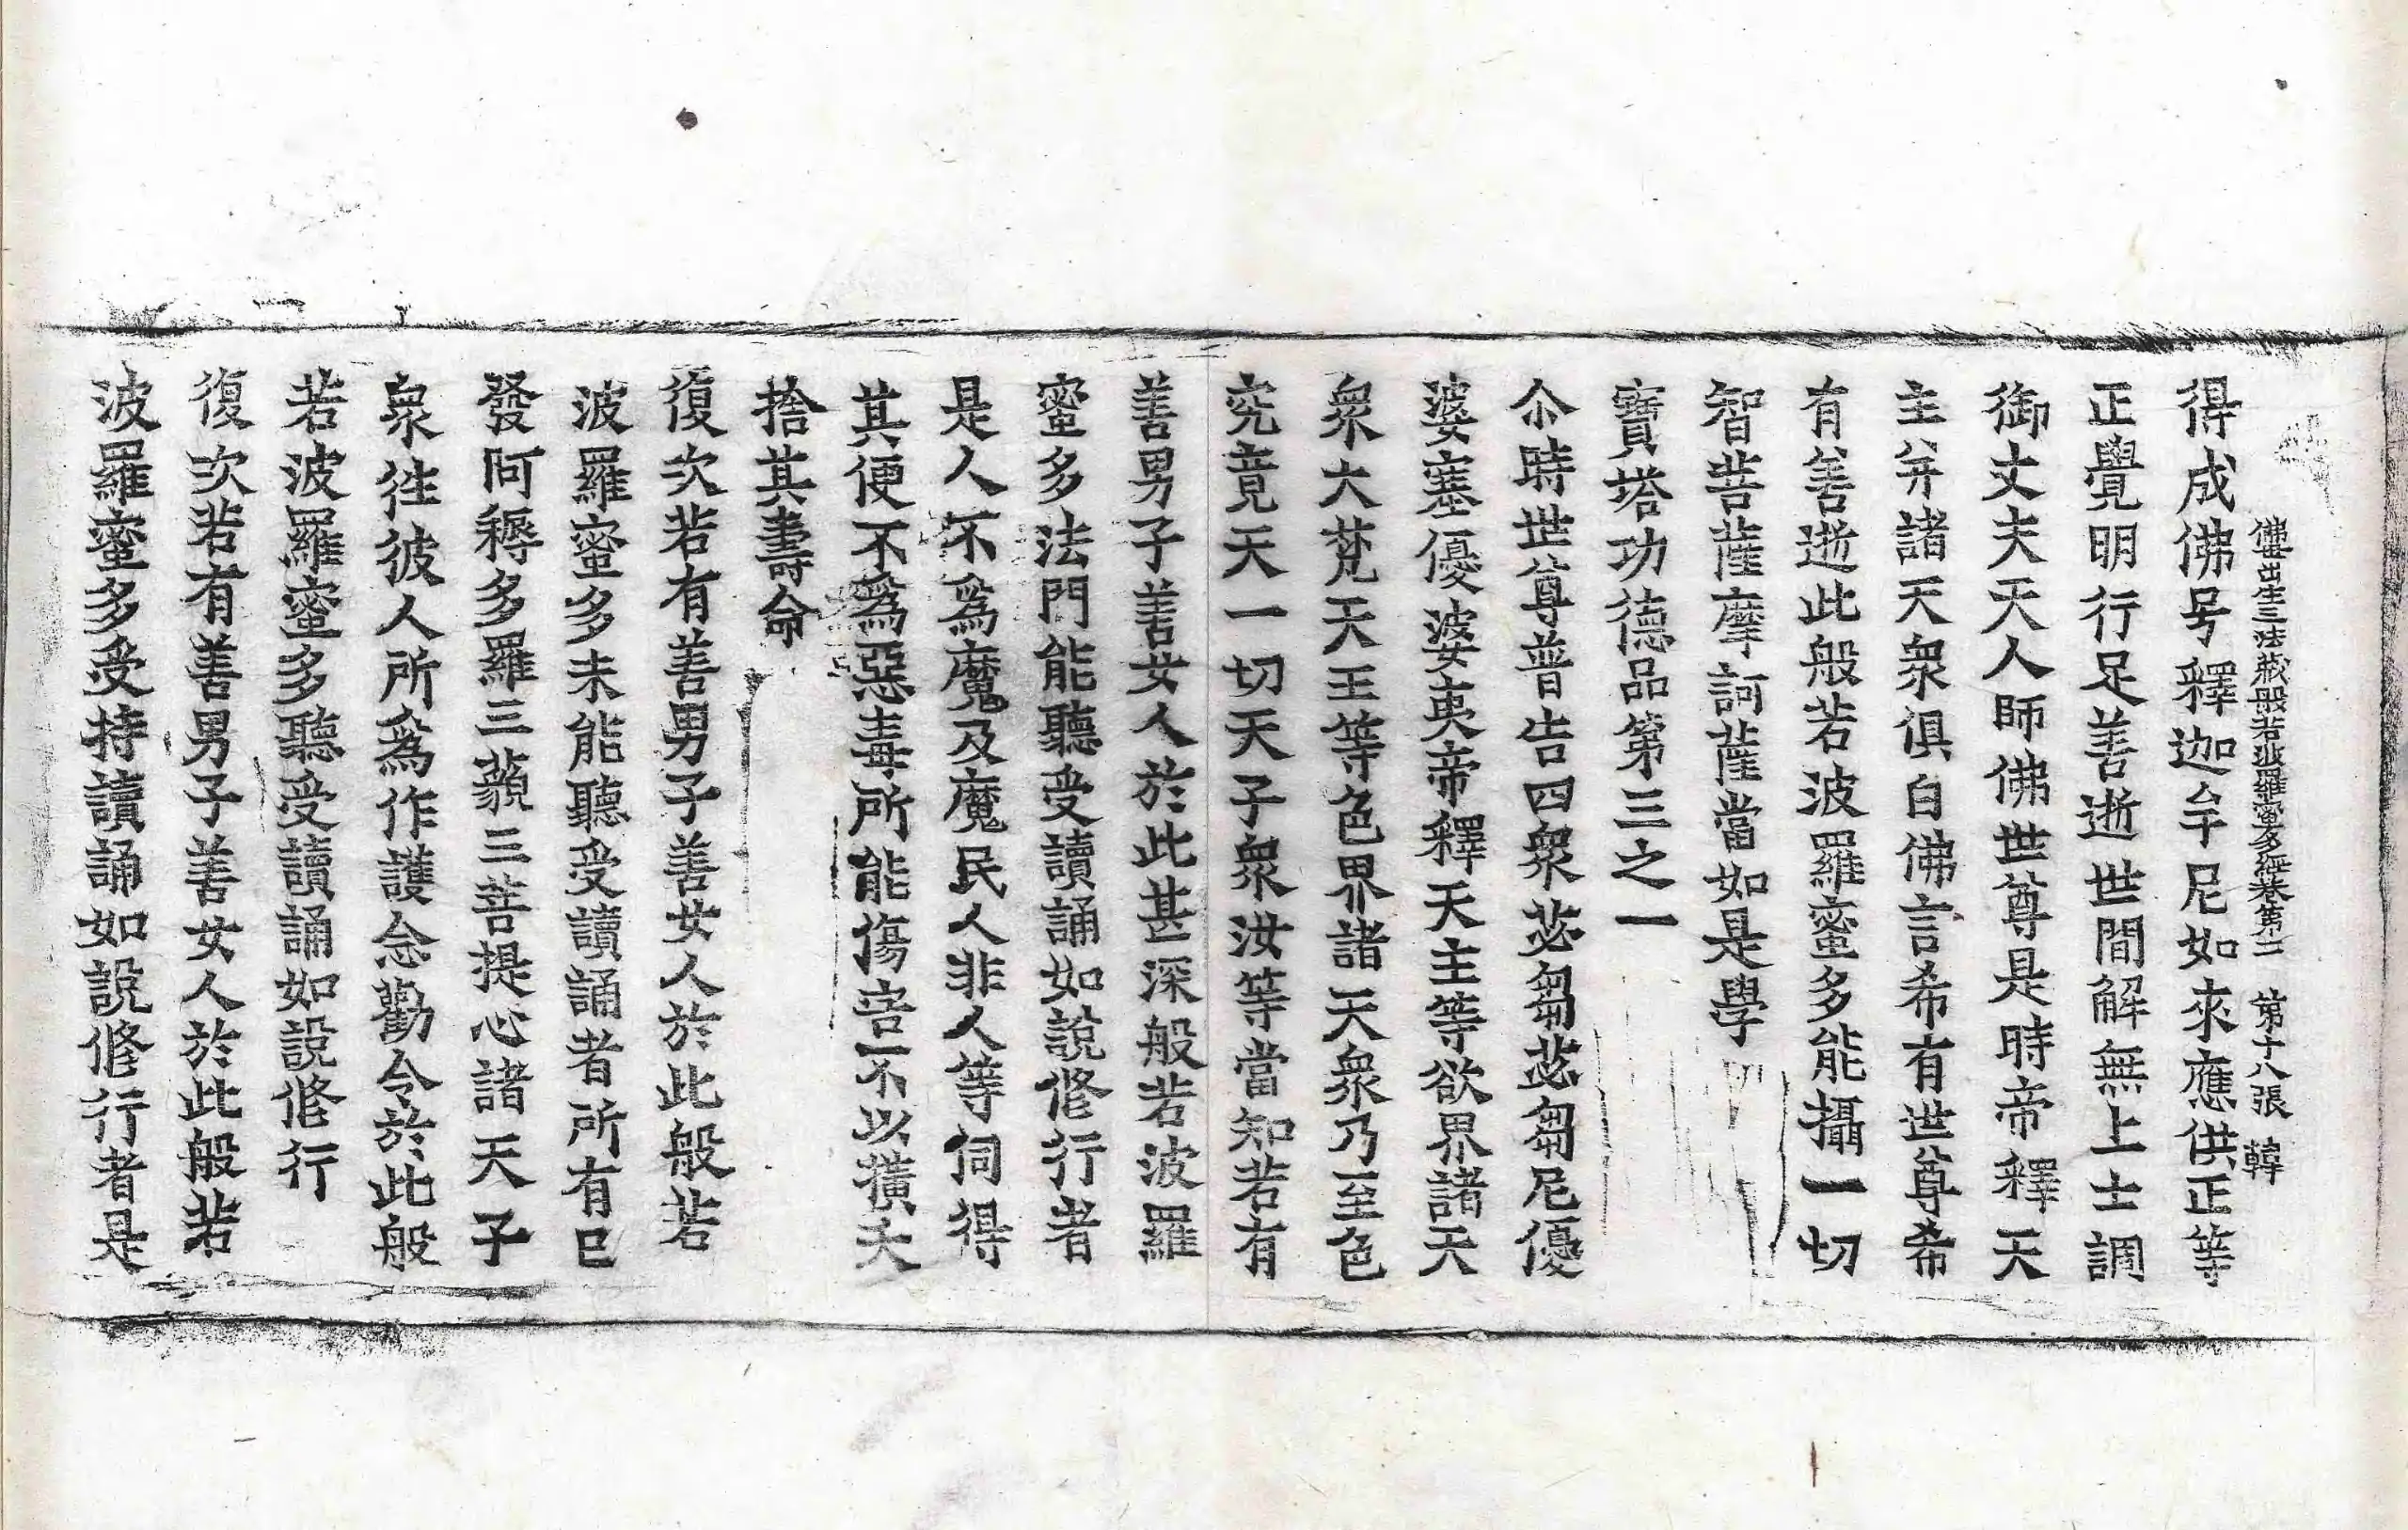 佛母出生三法藏般若波羅蜜多經卷第二 第十八張 韓
得成佛号釋迦牟尼如來應供正等
正覺明行足善逝世間解無上士調
御丈夫天人師佛世尊是時帝釋天
主并諸天衆俱白佛言希有世尊希
有善逝此般若波羅蜜多能攝一切
智菩薩摩訶薩當如是學
寶塔功德品第三之一
尒時世尊普告四衆苾芻苾芻尼優
婆塞優婆夷帝釋天主等欲界諸天
衆大梵天王等色界諸天衆乃至色
究竟天一切天子衆汝等當知若有
善男子善女人於此甚深般若波羅
蜜多法門能聽受讀誦如說修行者
是人不爲魔及魔民人非人等伺得
其便不爲惡毒所能傷害不以橫夭
捨其壽命
復次若有善男子善女人於此般若
波羅蜜多未能聽受讀誦者所有已
發阿耨多羅三藐三菩提心諸天子
衆往彼人所爲作護念勸令於此般
若波羅蜜多聽受讀誦如說修行
復次若有善男子善女人於此般若
波羅蜜多受持讀誦如說修行者是